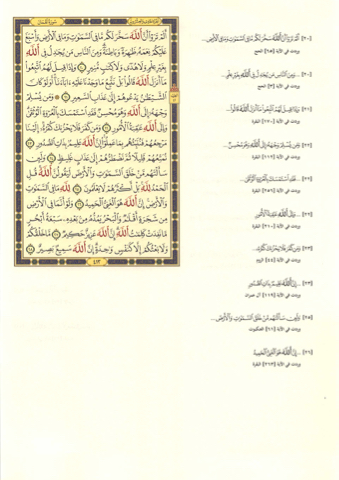 سورة لقمان
أَلَمْ تَرَوْا۟ أَنَّ ٱللَّهَ سَخَّرَ لَكُم مَّا فِى ٱلسَّمَٰوَٰتِ وَمَا فِى ٱلْأَرْضِ وَأَسْبَغَ
عَلَيْكُمْ نِعَمَهُۥ ظَٰهِرَةً وَبَاطِنَةً وَمِنَ ٱلنَّاسِ مَن يُجَٰدِلُ فِى ٱللَّهِ
بِغَيْرِ عِلْمٍ وَلَا هُدًى وَلَا كِتَٰبٍ مُّنِيرٍ ٢٠ وَإِذَا قِيلَ لَهُمُ ٱتَّبِعُوا۟
مَآ أَنزَلَ ٱللَّهُ قَالُوا۟ بَلْ نَتَّبِعُ مَا وَجَدْنَا عَلَيْهِ ءَابَآءَنَآ أَوَلَوْ كَانَ
ٱلشَّيْطَٰنُ يَدْعُوهُمْ إِلَىٰ عَذَابِ ٱلسَّعِيرِ ٢١ وَمَن يُسْلِمْ
وَجْهَهُۥٓ إِلَى ٱللَّهِ وَهُوَ مُحْسِنٌ فَقَدِ ٱسْتَمْسَكَ بِٱلْعُرْوَةِ ٱلْوُثْقَىٰ
وَإِلَى ٱللَّهِ عَٰقِبَةُ ٱلْأُمُورِ ٢٢ وَمَن كَفَرَ فَلَا يَحْزُنكَ كُفْرُهُۥٓ إِلَيْنَا
مَرْجِعُهُمْ فَنُنَبِّئُهُم بِمَا عَمِلُوٓا۟ إِنَّ ٱللَّهَ عَلِيمٌۢ بِذَاتِ ٱلصُّدُورِ ٢٣
نُمَتِّعُهُمْ قَلِيلًا ثُمَّ نَضْطَرُّهُمْ إِلَىٰ عَذَابٍ غَلِيظٍ ٢٤ وَلَئِن
سَأَلْتَهُم مَّنْ خَلَقَ ٱلسَّمَٰوَٰتِ وَٱلْأَرْضَ لَيَقُولُنَّ ٱللَّهُ قُلِ
ٱلْحَمْدُ لِلَّهِ بَلْ أَكْثَرُهُمْ لَا يَعْلَمُونَ ٢٥ لِلَّهِ مَا فِى ٱلسَّمَٰوَٰتِ
وَٱلْأَرْضِ إِنَّ ٱللَّهَ هُوَ ٱلْغَنِىُّ ٱلْحَمِيدُ ٢٦ وَلَوْ أَنَّمَا فِى ٱلْأَرْضِ
مِن شَجَرَةٍ أَقْلَٰمٌ وَٱلْبَحْرُ يَمُدُّهُۥ مِنۢ بَعْدِهِۦ سَبْعَةُ أَبْحُرٍ
مَّا نَفِدَتْ كَلِمَٰتُ ٱللَّهِ إِنَّ ٱللَّهَ عَزِيزٌ حَكِيمٌ ٢٧ مَّا خَلْقُكُمْ
وَلَا بَعْثُكُمْ إِلَّا كَنَفْسٍ وَٰحِدَةٍ إِنَّ ٱللَّهَ سَمِيعٌۢ بَصِيرٌ ٢٨
٤١٣
[٢٠] أَلَمْ تَرَوْا۟ أَنَّ ٱللَّهَ سَخَّرَ لَكُم مَّا فِى ٱلسَّمَٰوَٰتِ وَمَا فِى ٱلْأَرْضِ...
وردت في الآية [٦٥] الحج
[٢٠] ...وَمِنَ ٱلنَّاسِ مَن يُجَٰدِلُ فِى ٱللَّهِ بِغَيْرِ عِلْمٍ...
وردت في الآية [٣] الحج
[٢١] وَإِذَا قِيلَ لَهُمُ ٱتَّبِعُوا۟ مَآ أَنزَلَ ٱللَّهُ قَالُوا۟...
وردت في الآية [١٧٠] البقرة
[٢٢] وَمَن يُسْلِمْ وَجْهَهُۥٓ إِلَى ٱللَّهِ وَهُوَ مُحْسِنٌ...
وردت في الآية [١١٢] البقرة
[٢٢] ...فَقَدِ ٱسْتَمْسَكَ بِٱلْعُرْوَةِ ٱلْوُثْقَىٰ...
وردت في الآية [٢٥٦] البقرة
[٢٢] ...وَإِلَى ٱللَّهِ عَٰقِبَةُ ٱلْأُمُورِ
وردت في الآية
[٢٣] وَمَن كَفَرَ فَلَا يَحْزُنكَ كُفْرُهُ...
وردت في الآية [٤٤] الروم
[٢٣] ...إِنَّ ٱللَّهَ عَلِيمٌۢ بِذَاتِ ٱلصُّدُورِ
وردت في الآية [١١٩] آل عمران
[٢٥] وَلَئِن سَأَلْتَهُم مَّنْ خَلَقَ ٱلسَّمَٰوَٰتِ وَٱلْأَرْضَ...
وردت في الآية [٦١] العنكبوت
[٢٦] ...إِنَّ ٱللَّهَ هُوَ ٱلْغَنِىُّ ٱلْحَمِيدُ
وردت في الآية [٢٦٧] البقرة